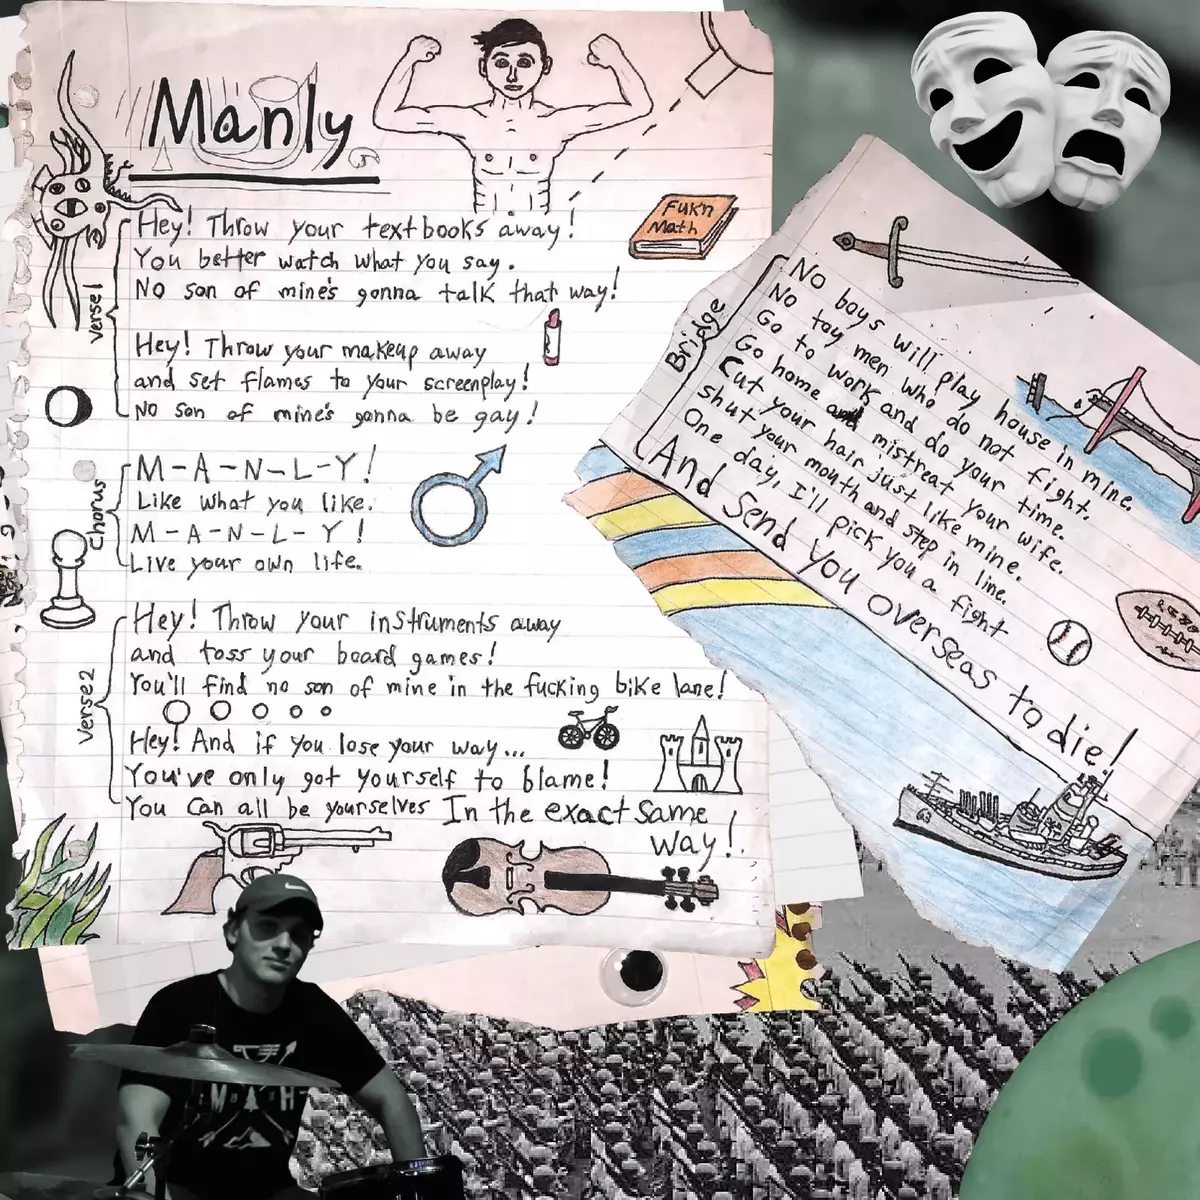 Manly
Verse1
Hey! Throw your textbooks away!
You better watch what you say.
No son of mine's gonna talk that way!
Hey! Throw your makeup away
and set flames to your screenplay!
No son of mine's gonna be gay!
Chorus
M-A-N-L-Y!
Like what you like.
M-A-N-L-Y!
Live your own life.
Verse2
Hey! Throw your instruments away
and toss your board games!
You'll find no son of mine in the fucking bike lane!
Hey! And if you lose your way...
You've only got yourself to blame!
You can all be yourselves In the exact same
way!
Fuk'n
Math
Bridge
No boys will play house in mine.
No toy men who do not fight.
Go to work and do your time.
Go home and mistreat your wife.
Cut your hair just like mine.
Shut your mouth and step in line.
One day, I'll pick you a fight
And Send You overseas to die!
M H